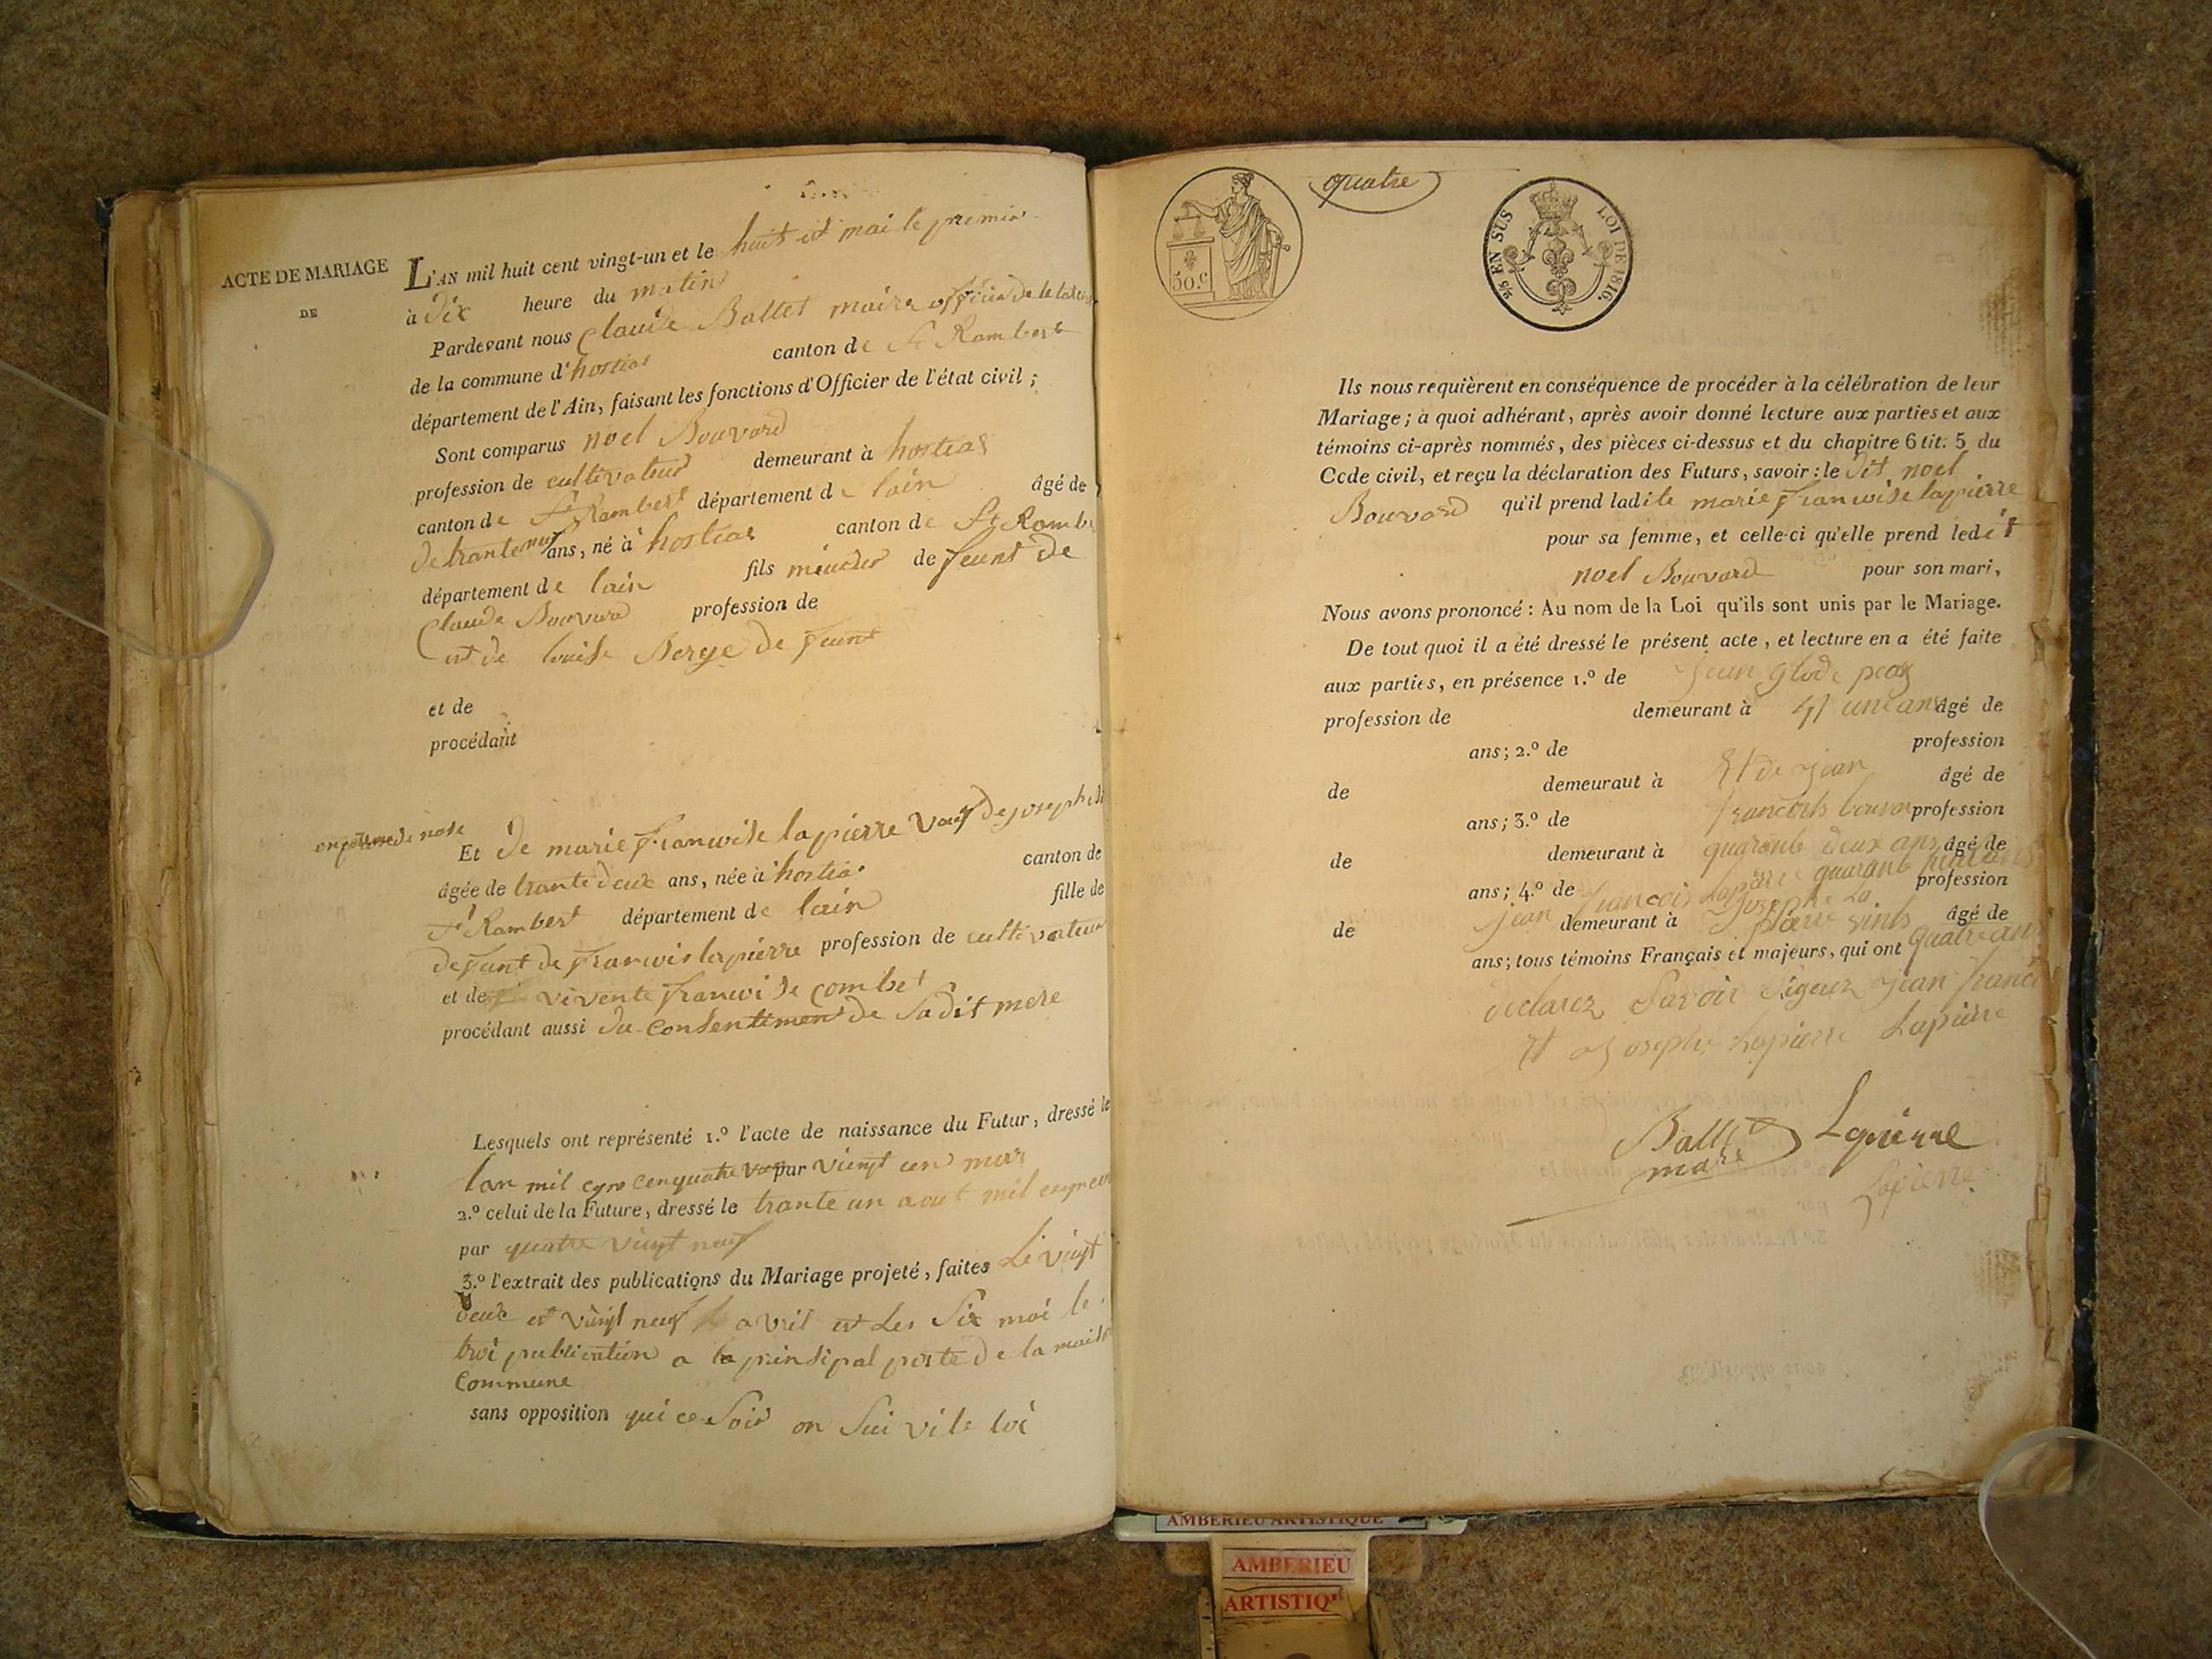 ACTE DE MARIAGE
DE
L'AN mil huit cent vingt-un et le huit et mai le premier
à dix heure du matin
Pardevant nous Claude Ballet maire officie de le
de la commune d'hostias canton de St Rambert
département de l'Ain, faisant les fonctions d'Officier de l'état civil ;
Sont comparus noel Bouvard
profession de cultivateur demeurant à hostias
canton de St Rambert département de lain âgé de
de trante neuf ans, né à hostias canton de St Ramb
département de lain fils mineur de feunt de
Claude Bouvard profession de
et de louise Berge de funt
et de
procédant
Et de marie francoise lapierre veuf de joseph
âgée de trante deux ans, née à hostias canton de
St Rambert département de lain fille de
defunt de francois lapierre profession de cultivateur
et de vivente francoise combet
procédant aussi du consentiment de sa dit mere
Lesquels ont représenté 1.º l'acte de naissance du Futur, dressé le
lan mil cen quatre par viengt un mars
2.º celui de la Future, dressé le trante un aout mil
par quatre vingt neuf
3.º l'extrait des publications du Mariage projeté, faites Le vingt
deux et vingt neuf avril et Les Six mai le
troi publication a la prinsipal porte de la maiso
Commune
sans opposition qui ce soit on suivi le loi
quatre
50.c
2/5 EN SUS LOI DE 1816.
Ils nous requièrent en conséquence de procéder à la célébration de leur
Mariage ; à quoi adhérant, après avoir donné lecture aux parties et aux
témoins ci-après nommés, des pièces ci-dessus et du chapitre 6 tit. 5 du
Code civil, et reçu la déclaration des Futurs, savoir : le dit noel
Bouvard qu'il prend ladite marie francoise lapierre
pour sa femme, et celle-ci qu'elle prend ledit
noel Bouvard pour son mari,
Nous avons prononcé : Au nom de la Loi qu'ils sont unis par le Mariage.
De tout quoi il a été dressé le présent acte, et lecture en a été faite
aux parties, en présence 1.º de Jean glode
profession de demeurant à une ans âgé de
ans ; 2.º de profession
de demeurant à Et de jean âgé de
ans ; 3.º de francois profession
de demeurant à quarante deux ans âgé de
ans ; 4.º de Jean francois Lapierre quarante profession
de demeurant à Joseph La pierre vint âgé de
ans ; tous témoins Français et majeurs, qui ont quatre ans
declarez Savoir Signer jean franc
Et Joseph Lapierre Lapierre
Ballet Lapierre
maire
Lapierre
AMBERIEU ARTISTIQUE
AMBERIEU
ARTISTIQ